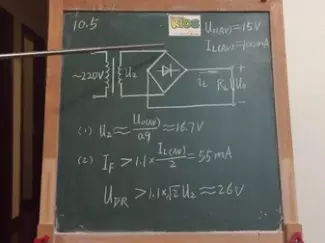 10.5
U₀(AV)=15V
I_L(AV)=100mA
~220V
U₂
i_L
R_L
U₀
+
-
(1) U₂≈U₀(AV)/0.9≈16.7V
(2) I_F>1.1×I_L(AV)/2=55mA
U_DR>1.1×√2U₂≈26V